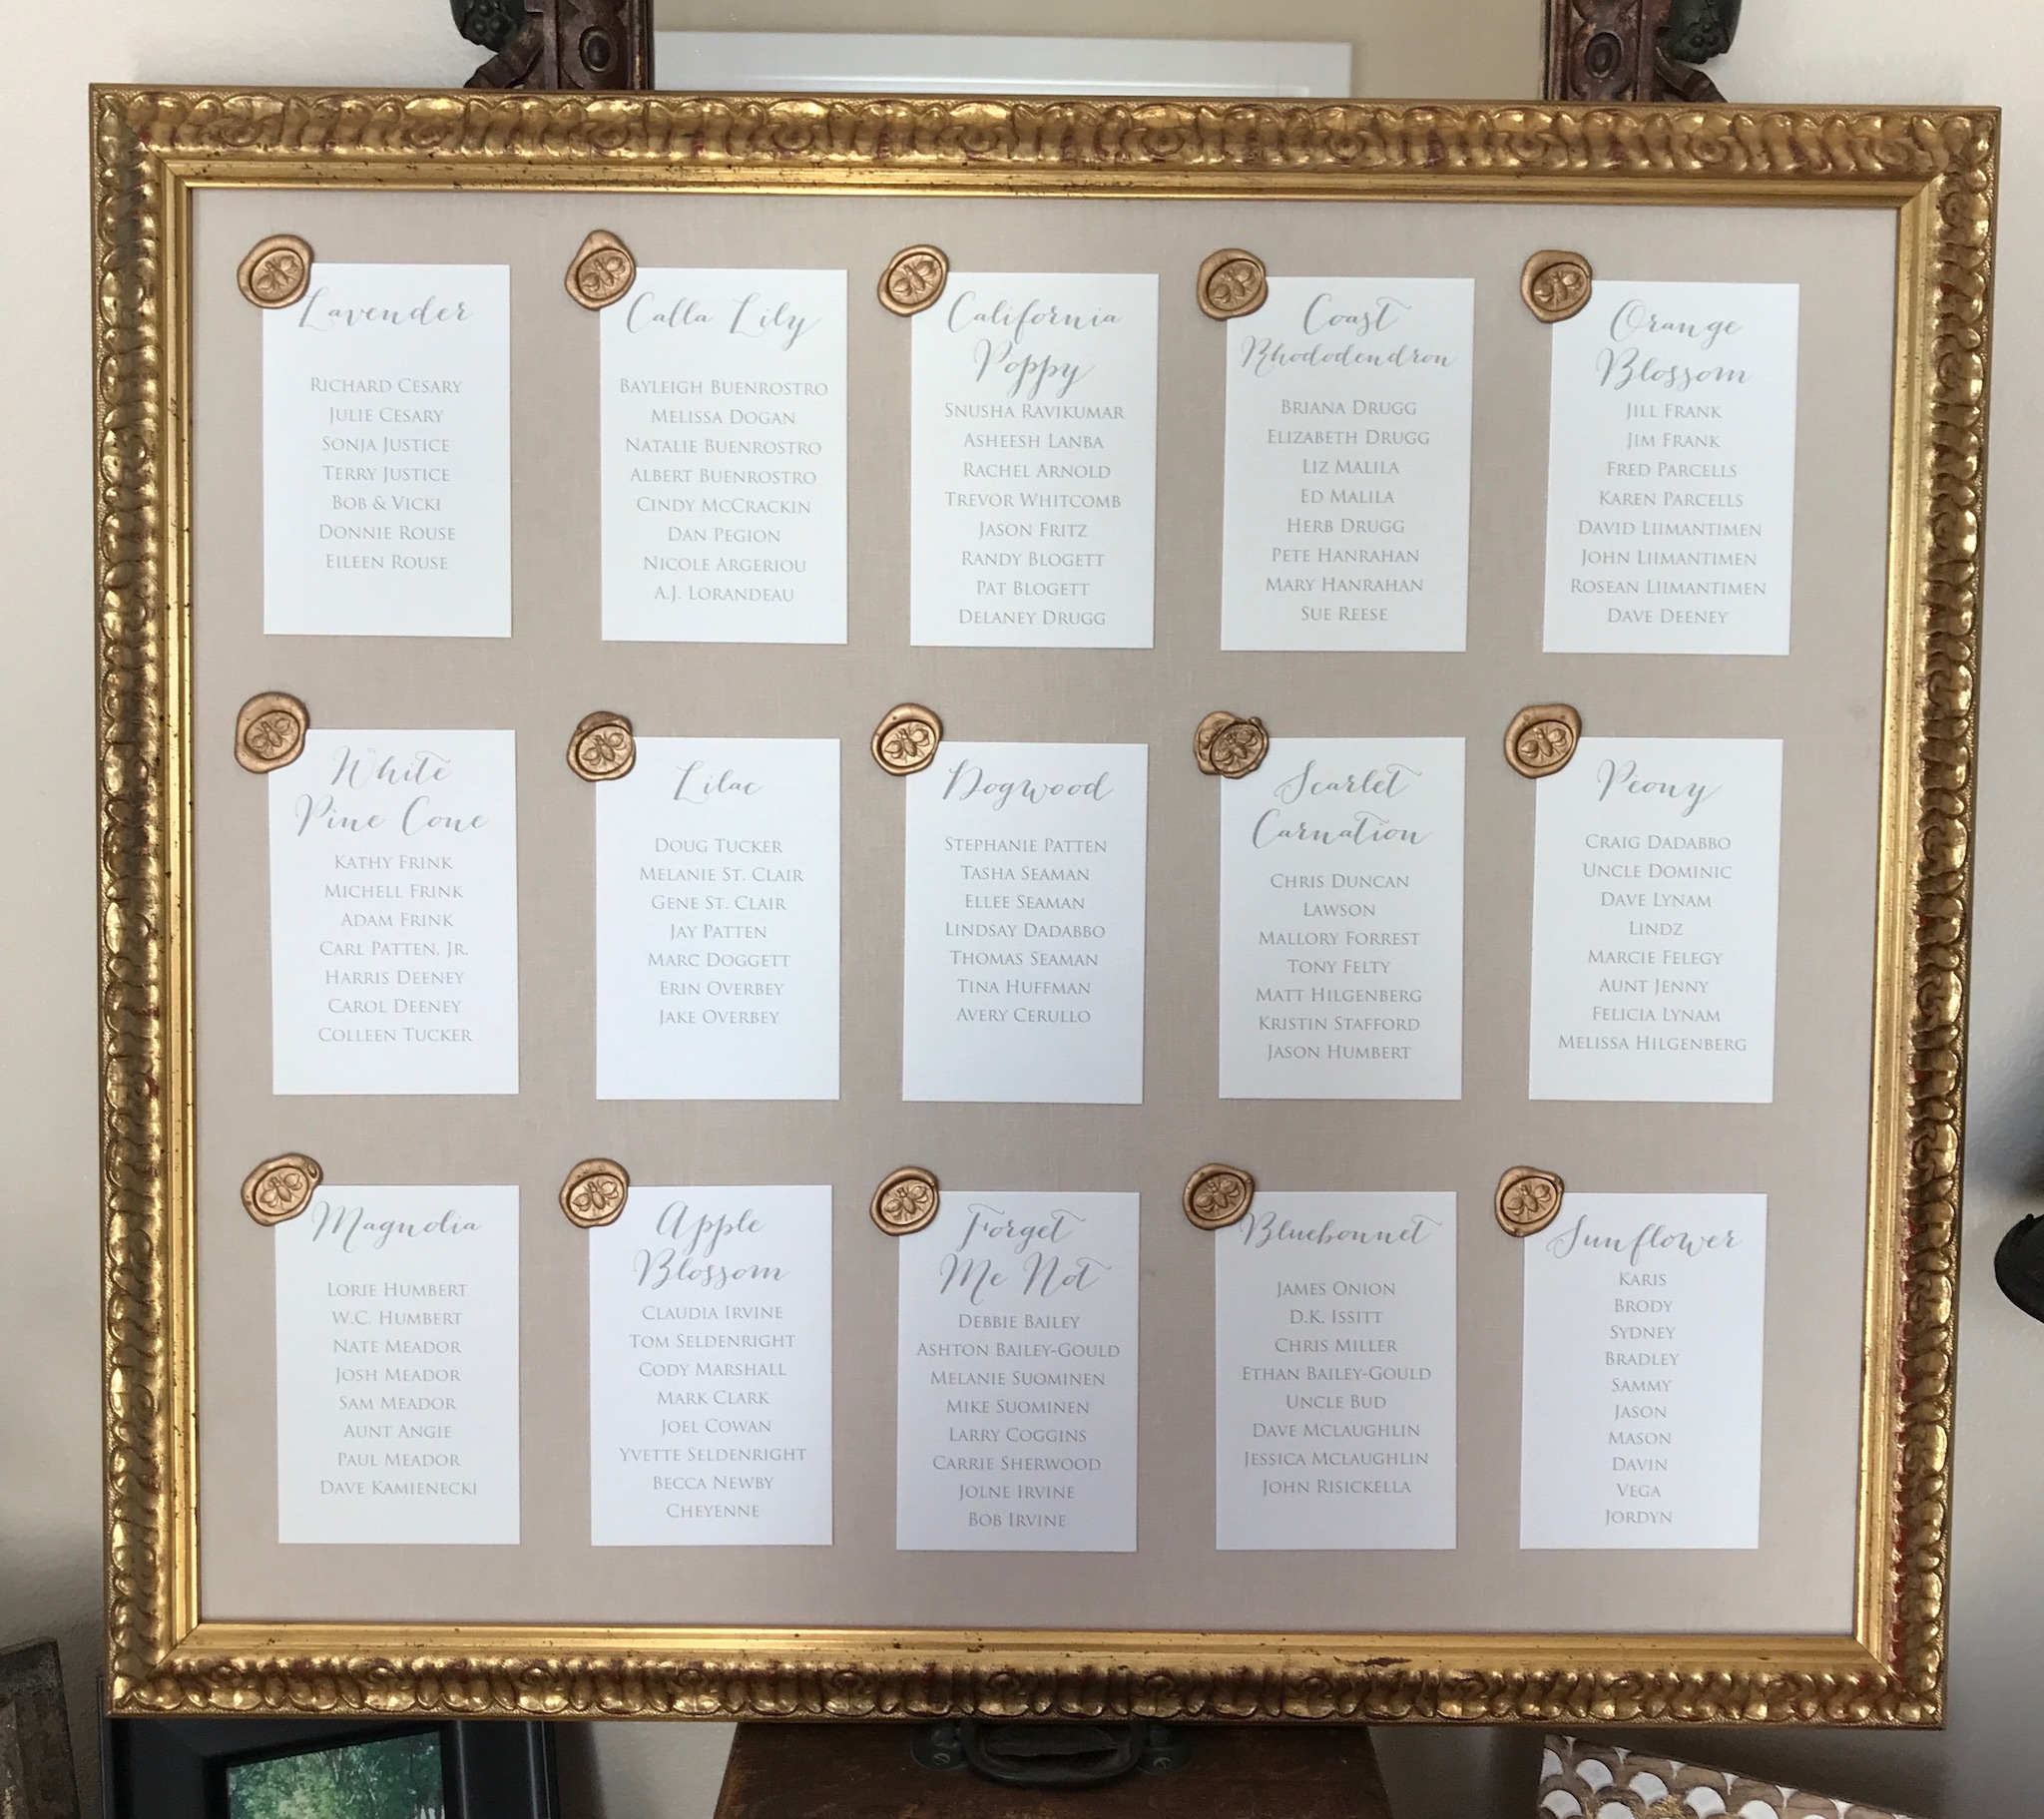 Lavender
RICHARD CESARY
JULIE CESARY
SONJA JUSTICE
TERRY JUSTICE
BOB & VICKI
DONNIE ROUSE
EILEEN ROUSE
Calla Lily
BAYLEIGH BUENROSTRO
MELISSA DOGAN
NATALIE BUENROSTRO
ALBERT BUENROSTRO
CINDY MCCRACKIN
DAN PEGION
NICOLE ARGERIOU
A.J. LORANDEAU
California
Poppy
SNUSHA RAVIKUMAR
ASHEESH LANBA
RACHEL ARNOLD
TREVOR WHITCOMB
JASON FRITZ
RANDY BLOGETT
PAT BLOGETT
DELANEY DRUGG
Coast
Rhododendron
BRIANA DRUGG
ELIZABETH DRUGG
LIZ MALILA
ED MALILA
HERB DRUGG
PETE HANRAHAN
MARY HANRAHAN
SUE REESE
Orange
Blossom
JILL FRANK
JIM FRANK
FRED PARCELLS
KAREN PARCELLS
DAVID LIIMANTIMEN
JOHN LIIMANTIMEN
ROSEAN LIIMANTIMEN
DAVE DEENEY
White
Pine Cone
KATHY FRINK
MICHELL FRINK
ADAM FRINK
CARL PATTEN, JR.
HARRIS DEENEY
CAROL DEENEY
COLLEEN TUCKER
Lilac
DOUG TUCKER
MELANIE ST. CLAIR
GENE ST. CLAIR
JAY PATTEN
MARC DOGGETT
ERIN OVERBEY
JAKE OVERBEY
Dogwood
STEPHANIE PATTEN
TASHA SEAMAN
ELLEE SEAMAN
LINDSAY DADABBO
THOMAS SEAMAN
TINA HUFFMAN
AVERY CERULLO
Scarlet
Carnation
CHRIS DUNCAN
LAWSON
MALLORY FORREST
TONY FELTY
MATT HILGENBERG
KRISTIN STAFFORD
JASON HUMBERT
Peony
CRAIG DADABBO
UNCLE DOMINIC
DAVE LYNAM
LINDZ
MARCIE FELEGY
AUNT JENNY
FELICIA LYNAM
MELISSA HILGENBERG
Magnolia
LORIE HUMBERT
W.C. HUMBERT
NATE MEADOR
JOSH MEADOR
SAM MEADOR
AUNT ANGIE
PAUL MEADOR
DAVE KAMIENECKI
Apple
Blossom
CLAUDIA IRVINE
TOM SELDENRIGHT
CODY MARSHALL
MARK CLARK
JOEL COWAN
YVETTE SELDENRIGHT
BECCA NEWBY
CHEYENNE
Forget
Me Not
DEBBIE BAILEY
ASHTON BAILEY-GOULD
MELANIE SUOMINEN
MIKE SUOMINEN
LARRY COGGINS
CARRIE SHERWOOD
JOLNE IRVINE
BOB IRVINE
Bluebonnet
JAMES ONION
D.K. ISSITT
CHRIS MILLER
ETHAN BAILEY-GOULD
UNCLE BUD
DAVE MCLAUGHLIN
JESSICA MCLAUGHLIN
JOHN RISICKELLA
Sunflower
KARIS
BRODY
SYDNEY
BRADLEY
SAMMY
JASON
MASON
DAVIN
VEGA
JORDYN